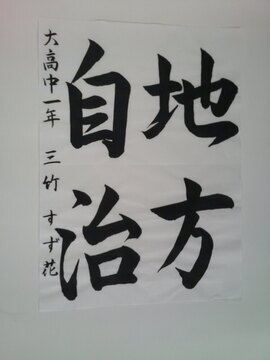 地方
自治
大高中一年 三竹 すず花